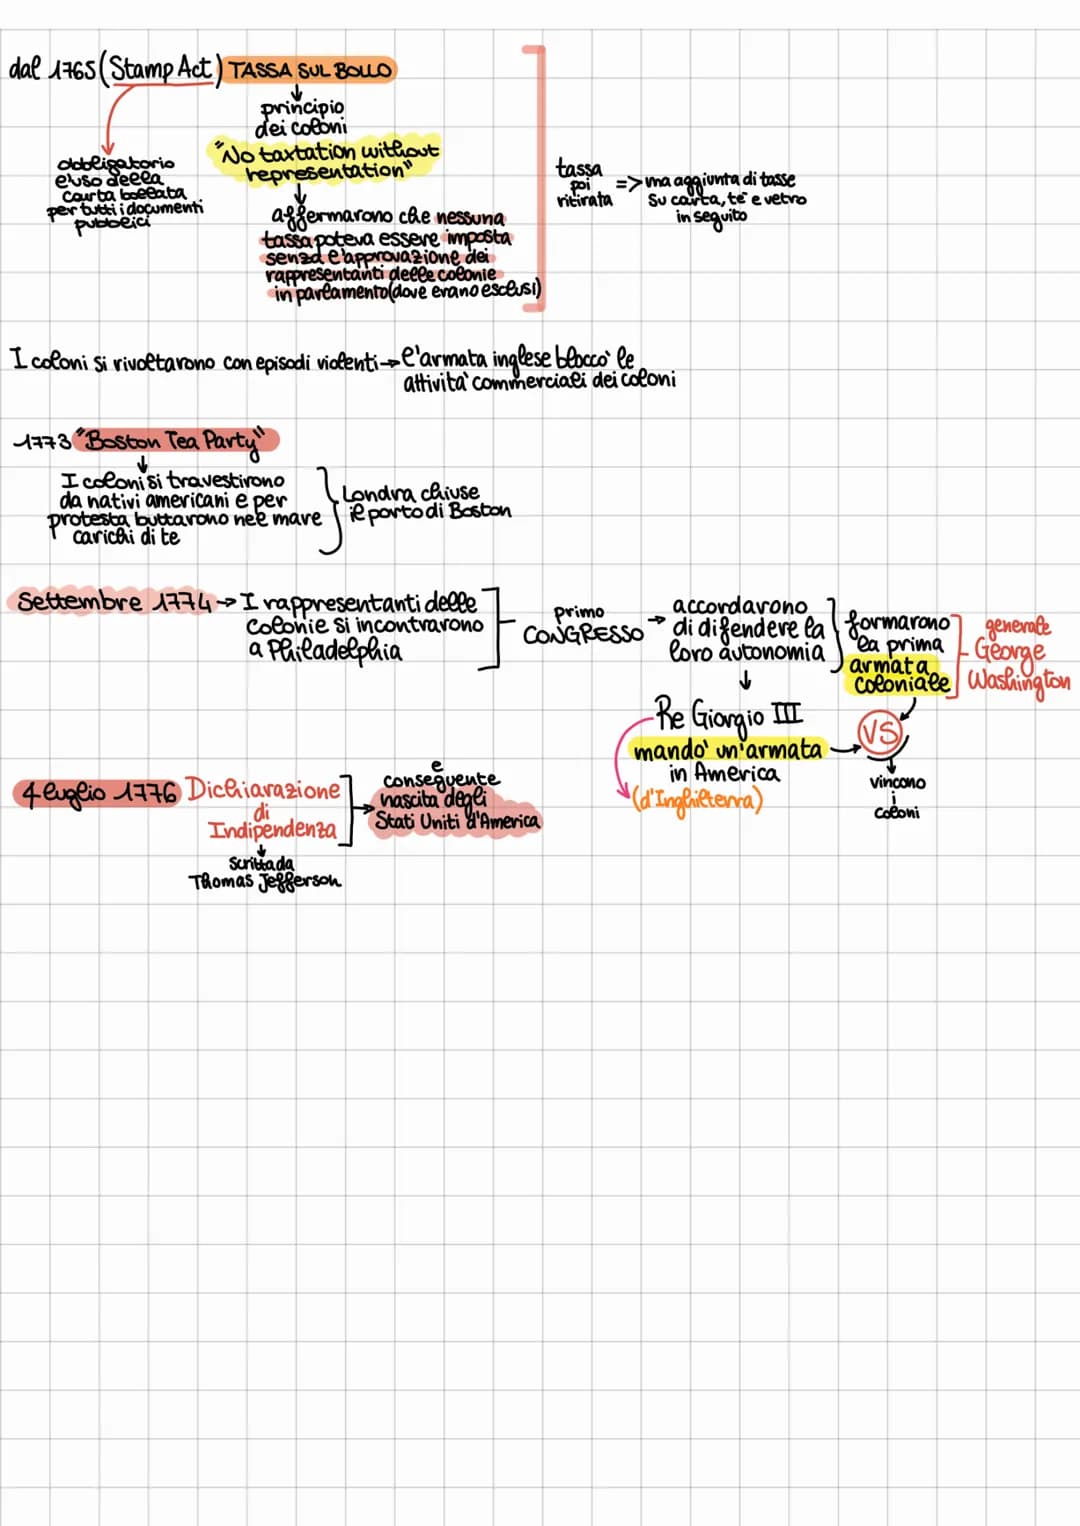 dal 1765 (Stamp Act) TASSA SUL BOLLO
obbligatorio
l'uso della
carta bollata
per tutti i documenti
pubblici
principio
dei coloni
"No taxtation without
representation"
affermarono che nessuna
tassa poteva essere imposta
senza l'approvazione dei
rappresentanti delle colonie
in parlamento (dove erano esclusi)
tassa
poi
ritirata
=> ma aggiunta di tasse
su carta, te e vetro
in seguito
I coloni si rivoltarono con episodi violenti → l'armata inglese bloccò le
attività commerciali dei coloni
1773 "Boston Tea Party"
I coloni si travestirono
da nativi americani e per
protesta buttarono nel mare
carichi di te
Londra chiuse
il porto di Boston
Settembre 1774 → I rappresentanti delle
colonie si incontrarono
a Philadelphia
primo
CONGRESSO →
accordarono
di difendere la
loro autonomia
formarono
la prima
armata
coloniale
generale
George
Washington
Re Giorgio III
mandò un'armata
in America
(d'Inghilterra)
VS
vincono
i
coloni
4 luglio 1776 Dichiarazione
di
Indipendenza
e
conseguente
nascita degli
Stati Uniti d'America
Scritta da
Thomas Jefferson